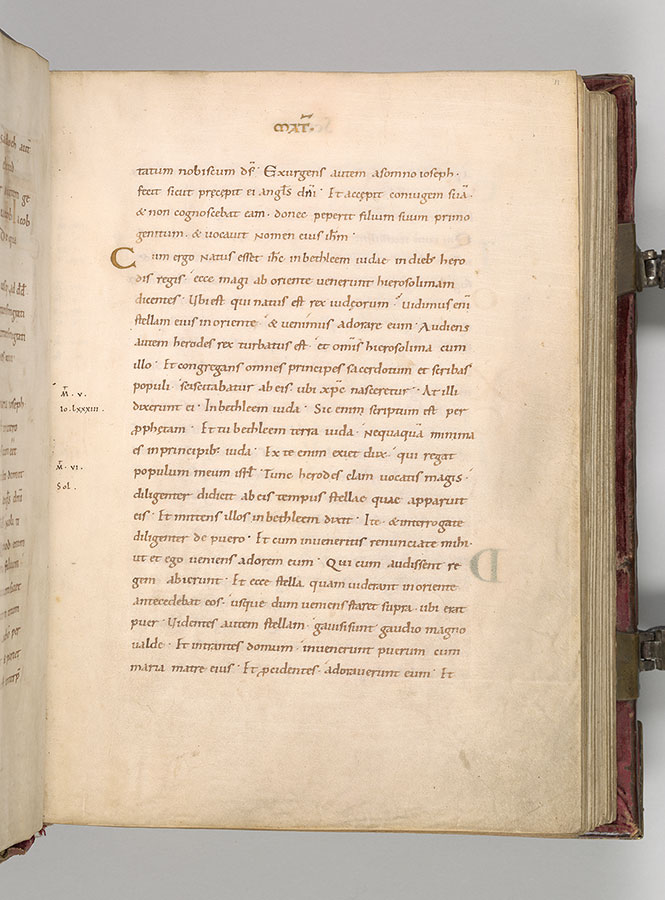 MAT̄.
tatum nobiscum d̄s. Exurgens autem asomno ioseph.
fecit sicut precepit ei angl̄s dn̄i. Et accepit coniugem suā.
& non cognoscebat eam. donec peperit filium suum primo
genitum. & vocavit nomen eius ih̄m.
Cum ergo natus esset ih̄c inbethleem iudae indieb; hero
dis regis. ecce magi ab oriente venerunt hierosolimam
dicentes. Ubi est qui natus est rex iudęorum. vidimus eni̅
stellam eius inoriente. & venimus adorare eum. Audiens
autem herodes rex turbatus est. et om̄is hierosolima cum
illo. Et congregans omnes principes sacerdotum et scribas
populi. sciscitabatur ab eis. ubi xp̄c nasceretur. At illi
dixerunt ei. Inbethleem iuda. Sic enim scriptum est per
prophetam. Et tu bethleem terra iuda. Nequaquā minima
es inprincipib; iuda. Ex te enim exiet dux. qui regat
populum meum isr̄l. Tunc herodes clam vocatis magis.
diligenter didicit ab eis tempus stellae quae apparuit
eis. Et mittens illos inbethleem dixit. Ite. & interrogate
diligenter de puero. Et cum inveneritis renunciate mihi.
ut et ego veniens adorem eum. Qui cum audissent re
gem abierunt. Et ecce stella quam viderant inoriente
antecedebat eos. usque dum veniens staret supra. ubi erat
puer. Videntes autem stellam. gavisisunt gaudio magno
valde. Et intrantes domum. invenerunt puerum cum
maria matre eius. Et procidentes. adoraverunt eum. Et
M̄. v.
Io. lxxxiii.
M̄. vi.
Sol.
D